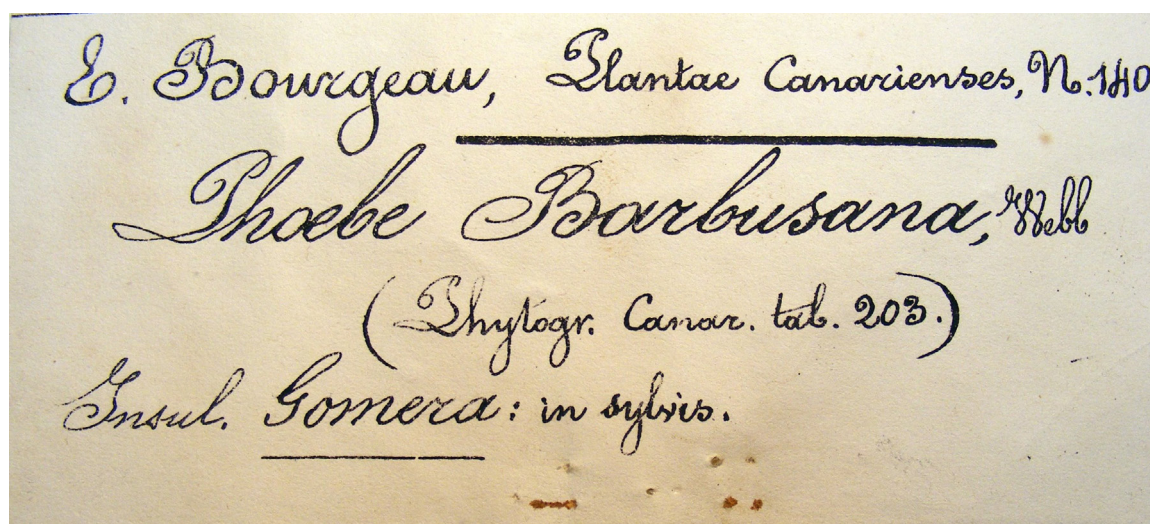 E. Bourgeau, Plantae Canarienses, N. 140
Phoebe Barbusana, Webb
(Phytogr. Canar. tab. 203.)
Insul. Gomera: in sylvis.